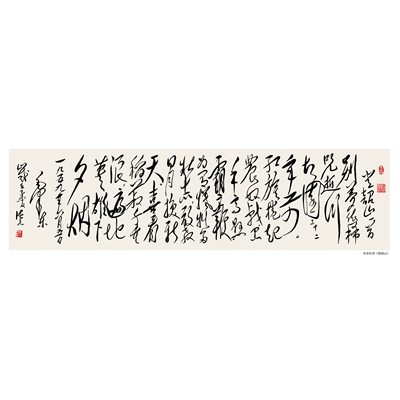 韶山一首
别梦依稀
咒逝川
故園三十二
年前。
红旗卷起
農奴戟黑
手高悬
霸主鞭
为有牺牲多
壮志敢教
日月换新
天喜看
稻菽千重
浪遍地
英雄下
夕烟
一九五九年六月
毛泽东